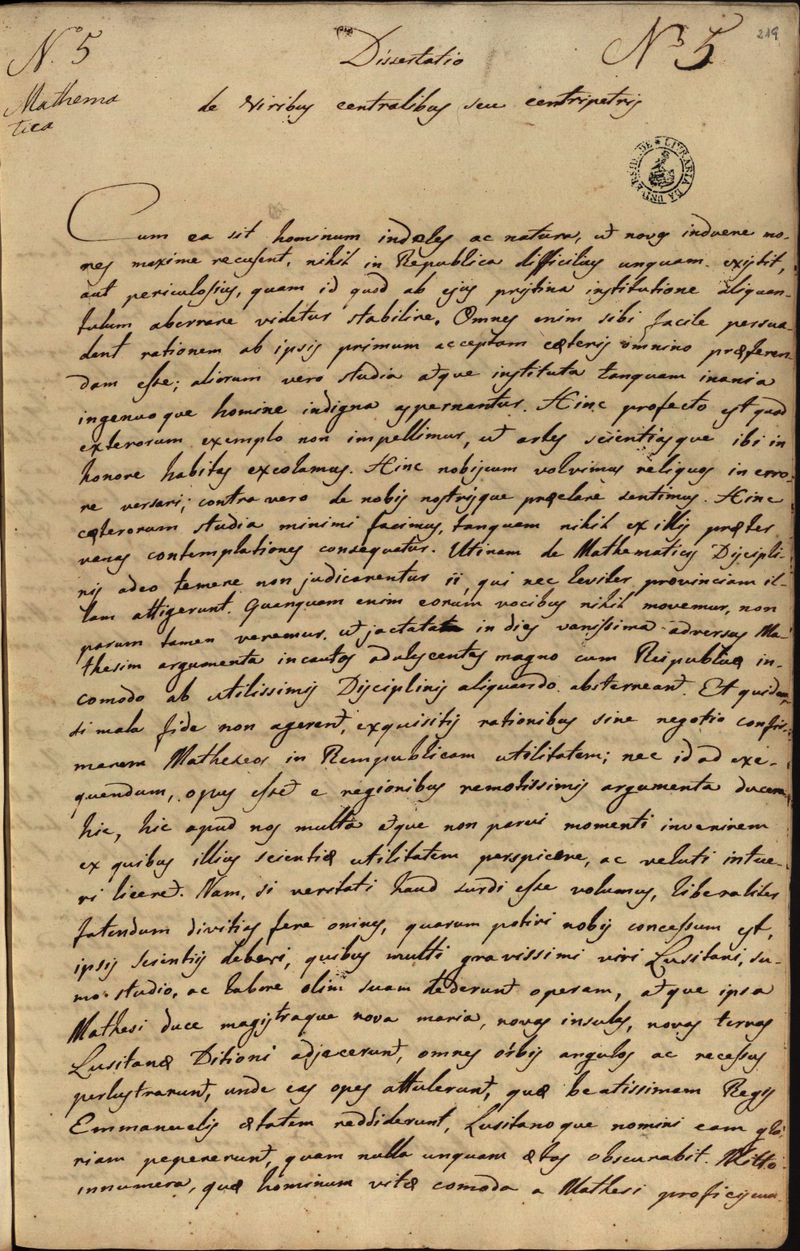 Nº 5
Dissertatio
Nº 5
219
Mathema
tica
de Viribus centralibus seu centripetris
LIVRARIA DA UNIVERSIDADE
Cum ea sit hominum indoles ac natura, ut novos induere mo-
res maxime recusent, nihil in Republica difficilius unquam existit,
aut periculosius, quam id quod ab ejus pristina institutione aliquan-
tulum aberrare videtur stabilire. Omnes enim sibi facile persua
dent rationem ab ipsis primum acceptam cæteris omnino præferen
dam esse; aliorum vero studia atque instituta tanquam inania
ingenuoque homine indigna aspernantur. Hinc profecto est quod
exterorum exemplo non impellimur, ut artes scientiasque ibi in
honore habitas excolamus. Hinc nobiscum volvimus reliquos in erro-
re versari; contra vero de nobis nostrisque præclare sentimus. Hinc
cæterorum studia minimi facimus, tanquam nihil ex illis præter
vanas contemplationes consequatur. Utinam de Mathematicis Discipli-
nis adeo temere non judicarentur ii, qui nec leviter provinciam il-
lam attigerunt. Quanquam enim eorum vocibus nihil movemur, non
parum tamen veremur, ut jactata in dies vanissima adversus Ma-
thesim argumenta incautos adulescentes magno cum Reipublicæ in-
comodo ab utilissimis Disciplinis aliquando absterneant. Et quidem,
si mala fide non agerent, exquisitis rationibus sine negotio confir-
marem Matheseos in Rempublicam utilitatem; nec id ad exe-
quendum, opus esset e regionibus remotissimis argumenta ducere
hic, hic apud nos multa atque non parvi momenti invenirem
ex quibus illius scientiæ utilitatem perspicere, ac veluti intue
ri liceret. Nam, si veritati haud surdi esse volumus, liberaliter
fatendum divitias fere omnes, quarum potiri nobis concessum est,
ipsis scientiis deberi, quibus multi gravissimi viri Lusitani, su-
mo studio, ac labore olim suam dederunt operam, atque ipsa
Mathesi duce magistraque nova maria, novas insulas, novas terras
Lusitanæ Ditioni adjecerunt, omnes orbis angulos ac recessus
perlustrarunt, unde eas opes attulerunt, quæ beatissimam Regis
Emmanuelis ætatem reddiderunt, Lusitanoque nomini eam glo
riam pepererunt, quam nulla unquam ætas obscurabit. Mitto
innumera, quæ hominum vitæ comoda a Mathesi proficiscun